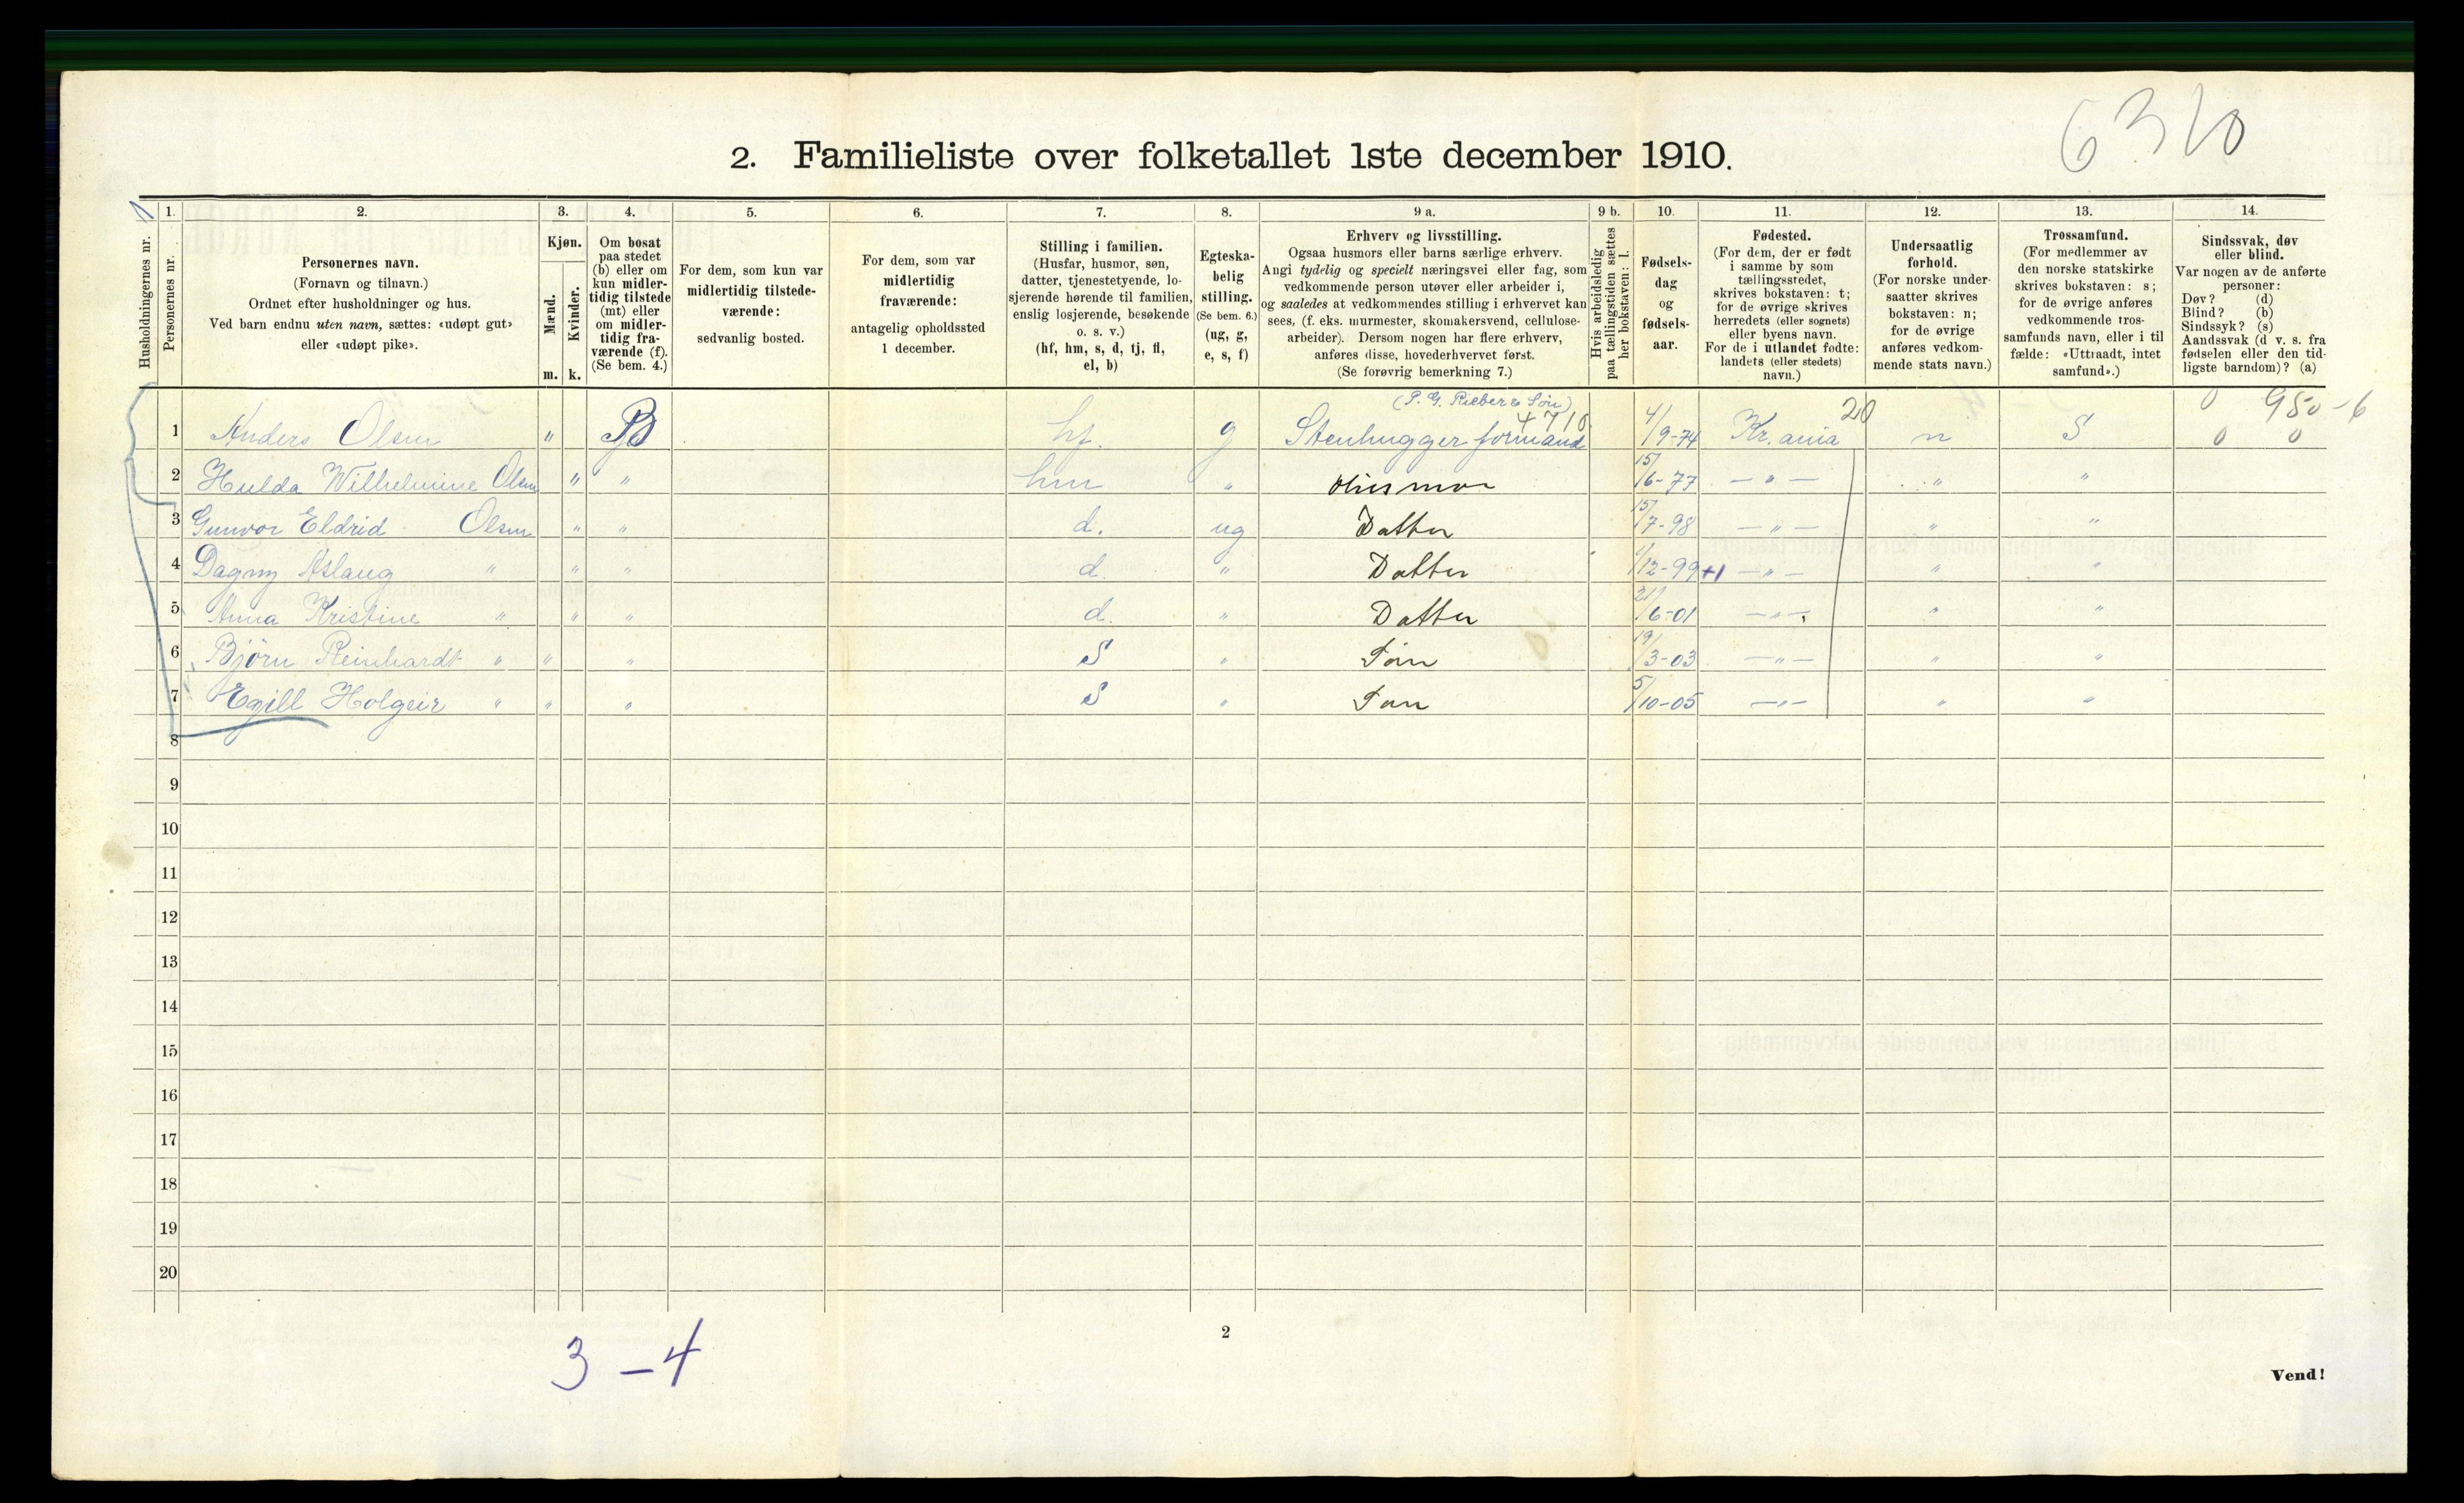 6310
2. Familieliste over folketallet 1ste december 1910.
Husholdningernes nr.
1. Personernes nr.
2. Personernes navn.
(Fornavn og tilnavn.)
Ordnet efter husholdninger og hus.
Ved barn endnu uten navn, sættes: «udøpt gut»
eller «udøpt pike».
3. Kjøn.
Mænd. m.
Kvinder. k.
4. Om bosat
paa stedet
(b) eller om
kun midler-
tidig tilstede
(mt) eller
om midler-
tidig fra-
værende (f).
(Se bem. 4.)
5. For dem, som kun var
midlertidig tilstede-
værende:
sedvanlig bosted.
6. For dem, som var
midlertidig
fraværende:
antagelig opholdssted
1 december.
7. Stilling i familien.
(Husfar, husmor, søn,
datter, tjenestetyende, lo-
sjerende hørende til familien,
enslig losjerende, besøkende
o. s. v.)
(hf, hm, s, d, tj, fl,
el, b)
8. Egteska-
belig
stilling.
(Se bem. 6.)
(ug, g,
e, s, f)
9 a. Erhverv og livsstilling.
Ogsaa husmors eller barns særlige erhverv.
Angi tydelig og specielt næringsvei eller fag, som
vedkommende person utøver eller arbeider i,
og saaledes at vedkommendes stilling i erhvervet kan
sees, (f. eks. murmester, skomakersvend, cellulose-
arbeider). Dersom nogen har flere erhverv,
anføres disse, hovederhvervet først.
(Se forøvrig bemerkning 7.)
9 b. Hvis arbeidsledig
paa tællingstiden sættes
her bokstaven: l.
10. Fødsels-
dag
og
fødsels-
aar.
11. Fødested.
(For dem, der er født
i samme by som
tællingsstedet,
skrives bokstaven: t;
for de øvrige skrives
herredets (eller sognets)
eller byens navn.
For de i utlandet fødte:
landets (eller stedets)
navn.)
12. Undersaatlig
forhold.
(For norske under-
saatter skrives
bokstaven: n;
for de øvrige
anføres vedkom-
mende stats navn.)
13. Trossamfund.
(For medlemmer av
den norske statskirke
skrives bokstaven: s;
for de øvrige anføres
vedkommende tros-
samfunds navn, eller i til
fælde: «Uttraadt, intet
samfund».)
14. Sindssvak, døv
eller blind.
Var nogen av de anførte
personer:
Døv? (d)
Blind? (b)
Sindssyk? (s)
Aandssvak (d v. s. fra
fødselen eller den tid-
ligste barndom)? (a)
(P. G. Rieber & Søn) 4710 20 0 950-6
1 Anders Olsen " B hf. g Stenhugger formand 4/9-74 Kr.ania n S 0 0
2 Hulda Wilhelmine Olsen " " hm " Husmor 15/6-77 — " — " "
3 Gunvor Eldrid Olsen " " d. ug Datter 15/7-98 — " — " "
4 Dagny Aslaug " " " d. " Datter 1/12-99 +1 — " — " "
5 Anna Kristine " " " d. " Datter 21/6-01 — " — " "
6 Bjørn Reinhardt " " " S " Søn 19/3-03 — " — " "
7 Egill Holgeir " " " S " Søn 5/10-05 — " — " "
8
9
10
11
12
13
14
15
16
17
18
19
20
3-4
2
Vend!